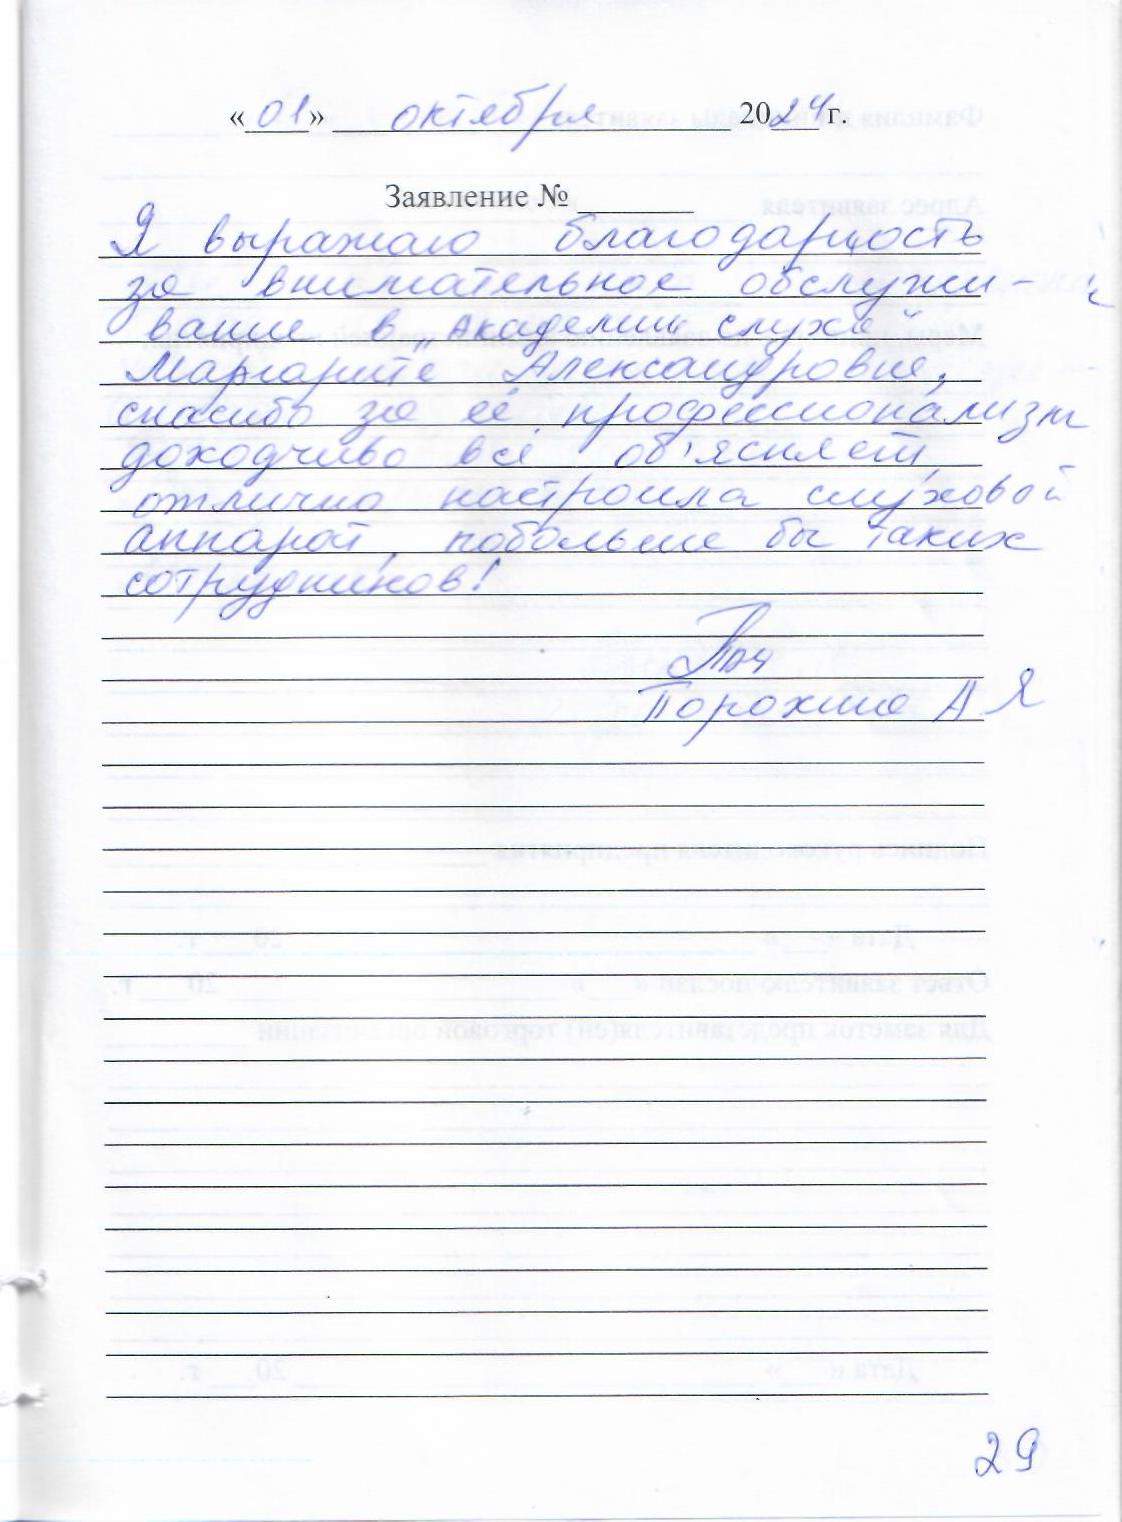 «01» октября 2024 г.
Заявление № ______
Я выражаю благодарность
за внимательное обслужи-
вание в "Академии слуха"
Маргарите Александровне,
спасибо за её профессионализм
доходчиво всё об'ясняет,
отлично настроила слуховой
аппарат, побольше бы таких
сотрудников!
Порохина А Я
29